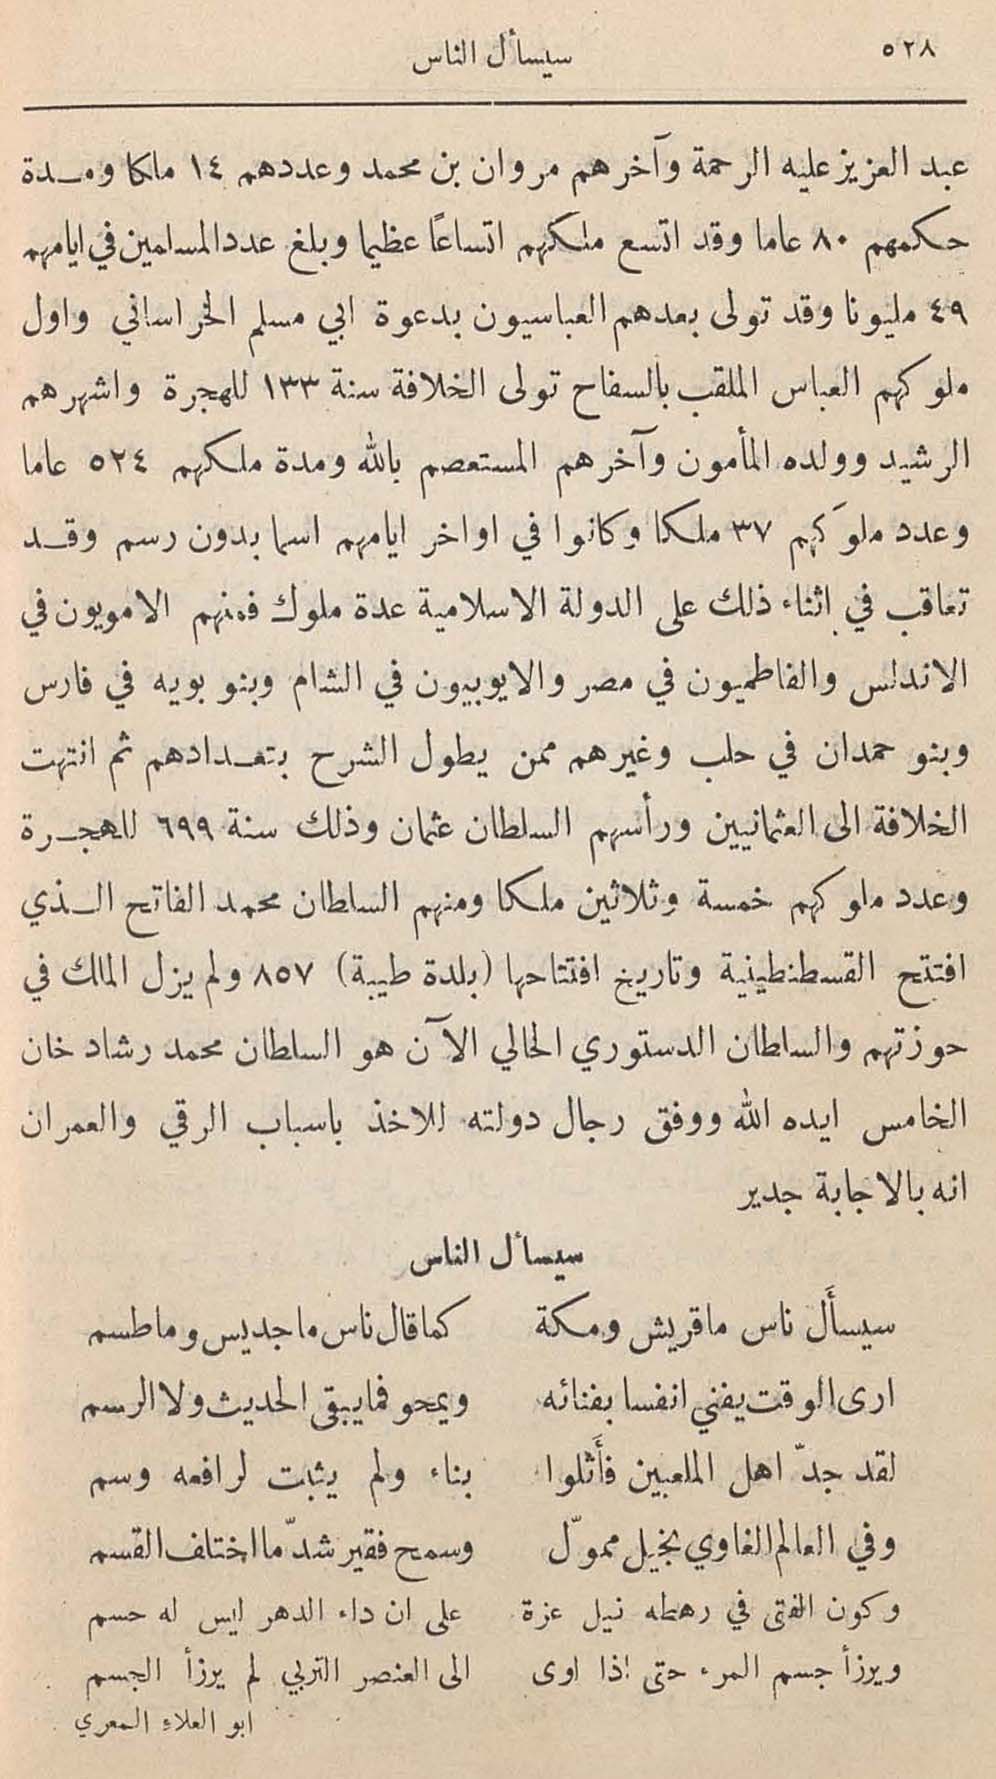 ٥٢٨
سيسأل الناس
عبد العزيز عليه الرحمة وآخرهم مروان بن محمد وعددهم ١٤ ملكا ومـدة
حكمهم ٨٠ عاما وقد اتسع ملكهم اتساعًا عظيما وبلغ عدد المسلمين في ايامهم
٤٩ مليونا وقد تولى بعدهم العباسيون بدعوة ابي مسلم الخراساني واول
ملوكهم العباس الملقب بالسفاح تولى الخلافة سنة ١٣٣ للهجرة واشهرهم
الرشيد وولده المأمون وآخرهم المستعصم بالله ومدة ملكهم ٥٢٤ عاما
وعدد ملوكهم ٣٧ ملكا وكانوا في اواخر ايامهم اسما بدون رسم وقـد
تعاقب في اثناء ذلك على الدولة الاسلامية عدة ملوك فمنهم الامويون في
الاندلس والفاطميون في مصر والايوبيون في الشام وبنو بويه في فارس
وبنو حمدان في حلب وغيرهم ممن يطول الشرح بتعـدادهم ثم انتهت
الخلافة الى العثمانيين ورأسهم السلطان عثمان وذلك سنة ٦٩٩ للهجـرة
وعدد ملوكهم خمسة وثلاثين ملكا ومنهم السلطان محمد الفاتح الـذي
افتتح القسطنطينية وتاريخ افتتاحها (بلدة طيبة) ٨٥٧ ولم يزل الملك في
حوزتهم والسلطان الدستوري الحالي الآن هو السلطان محمد رشاد خان
الخامس ايده الله ووفق رجال دولته للاخذ باسباب الرقي والعمران
انه بالاجابة جدير
سيسأل الناس
سيسأَل ناس ماقريش ومكة كماقال ناس ماجديس وماطسم
ارى الوقت يفني انفسا بفنائه ويمحو فمايبقى الحديث ولا الرسم
لقد جدّ اهل الملعبين فأَثلوا بناء ولم يثبت لرافعه وسم
وفي العالم الغاوي بخيل مموّل وسمح فقير شدّ ما اختلف القسم
وكون الفتى في رهطه نيل عزة على ان داء الدهر ليس له حسم
ويرزأ جسم المرء حتى اذا اوى الى العنصر التربي لم يرزأ الجسم
ابو العلاء المعري